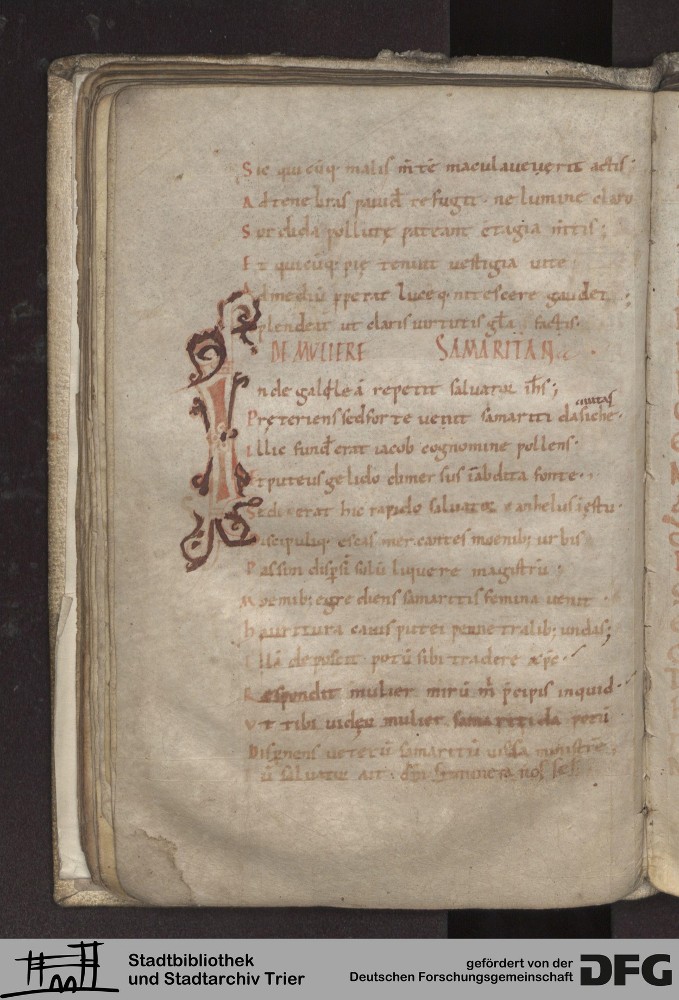 Sic quicūq· malis m̄tē maculaverit actis;
Ad tenebras pavid̄ refugit· ne lumine claro
Sordida pollutę pateant cōtagia m̄tis;
Et quicūq· pię tenuit vestigia vite
Ad mediū pperat luceq· nitescere gaudet;
Splendeat ut claris virtutis gl̄a factis·
DE MULIERE SAMARITANA
Inde galileā repetit salvator ih̄s;
civitas
Pręteriens sed forte venit samariti da siche·
Illic fund̄ erat iacob cognomine pollens·
Et puteus gelido dimersus īabdita fonte·
Sederat hic rapido salvator anhelus ięstu·
Discipuliq· escas mercantes moenib; urbis
Passim disp̄si solū liquere magistrū;
Moenib; egrediens samaritis femina venit
hauritura cavis putei penetralib; undas;
Illā deposcit potū sibi tradere xp̄c·
Respondit mulier mirū m̄ p̄cipis inquid·
Ut tibi videor mulier samaritida potū
Dispnens veterū samaritū ministrē;
ū salvator ait· dn̄i
Stadtbibliothek
und Stadtarchiv Trier
gefördert von der
Deutschen Forschungsgemeinschaft
DFG